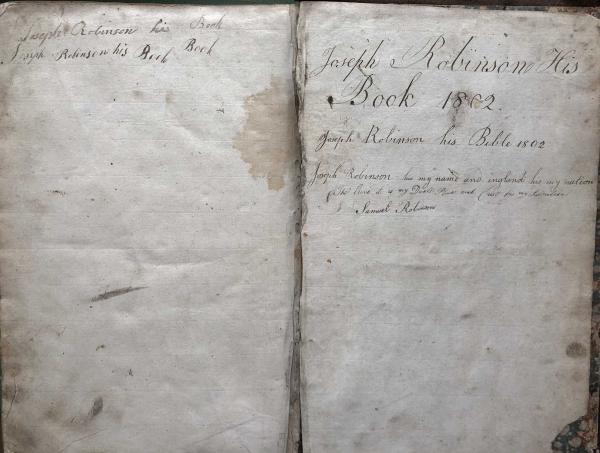 Joseph Robinson his Book
Joseph Robinson his Book Book
Joseph Robinson His
Book 1802.
Joseph Robinson his Bible 1802
Joseph Robinson his my name and ingland his my nation
is my and my
Samuel Robinson